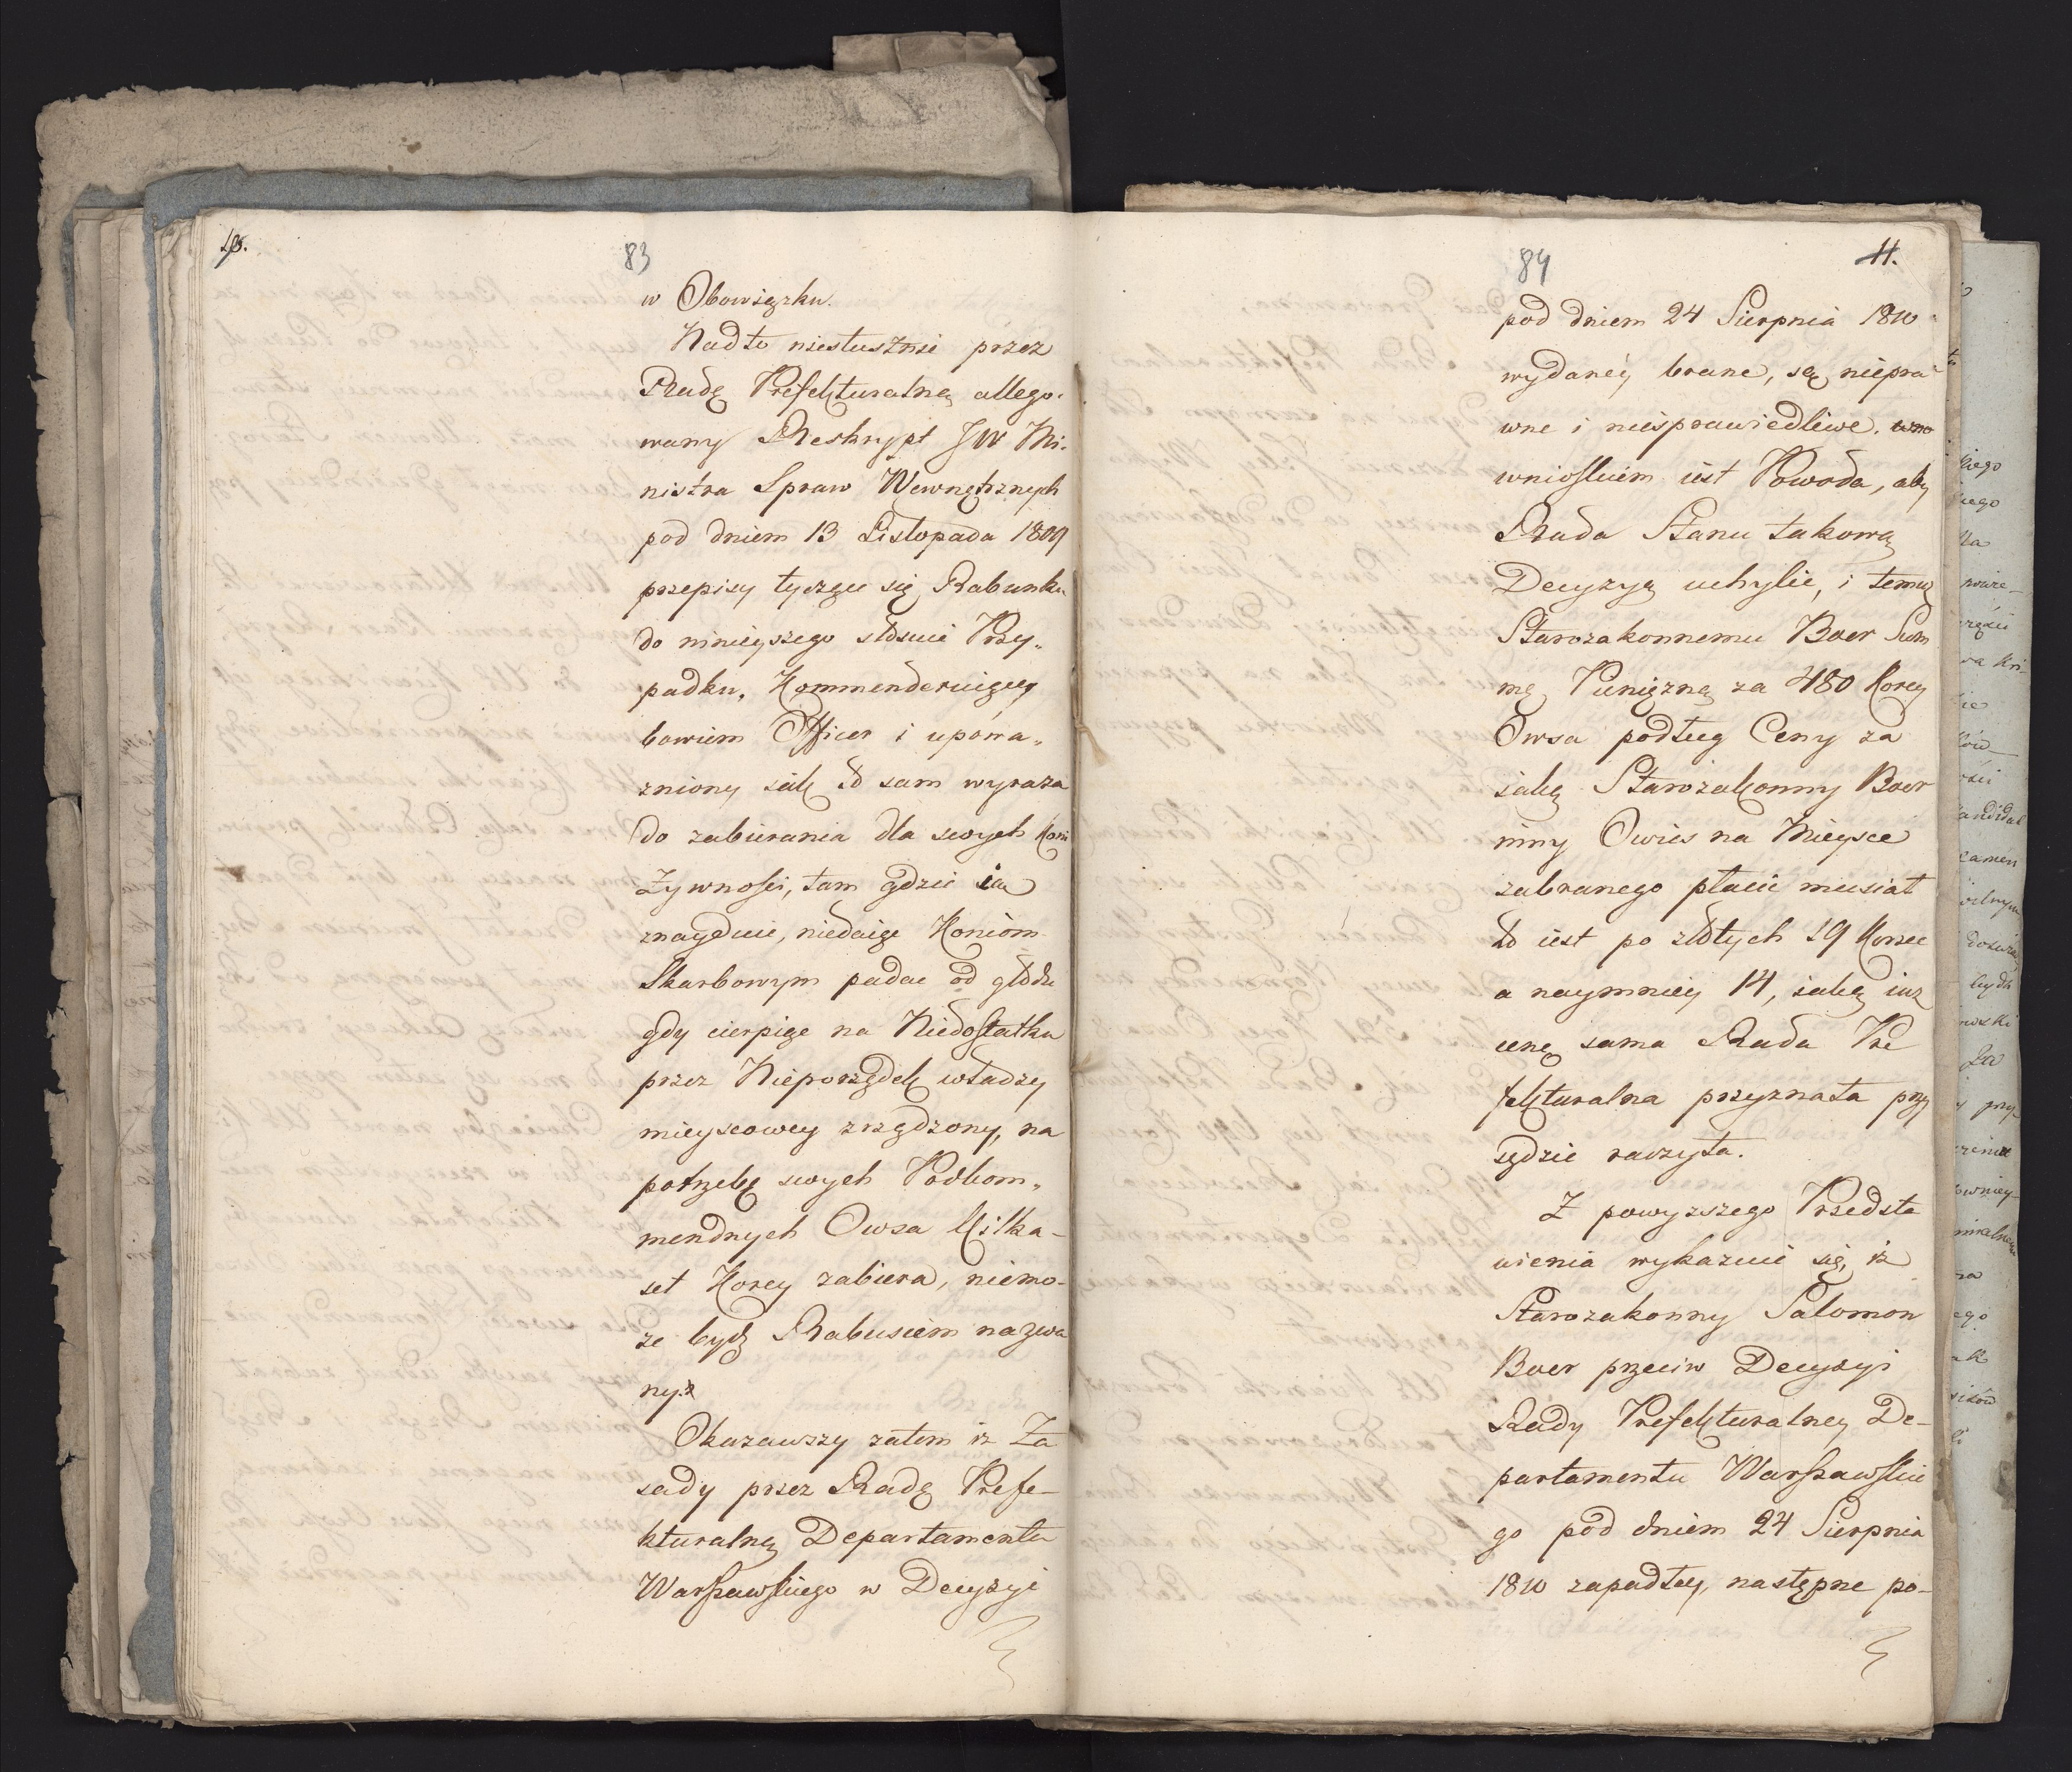 83
w Obowiązku.
Nadto niesłusznie przez
Radę Prefekturalną allego.
wany Reskrypt JW Mi.
nistra Spraw Wewnętrznych
pod dniem 13 Listopada 1809
przepisy tyczące się Rabunku
do ninieyszego stosuie Przy„
padku, Kommenderuiący
bowiem Officer i upowa„
zniony iak to sam wyraza
do zabierania dla swych Koni
Zywnosci, tam gdzie ią
znayduie, niedaiąc Koniom
Skarbowym padac od głodu
gdy cierpiąc na Niedostatku
przez Nieporządek władzy
mieyscowey zrządzony, na
potrzebę swych Podkom„
mendnych Owsa Kilka-
set Korcy zabiera, niemo-
ze bydz Rabusiem nazwa
ny.
Okazawszy zatem iz Za
sady przez Radę Prefe-
kturalną Departamentu
Warszawskiego w Decyzyi
84
11.
pod dniem 24 Sierpnia 1810
wydanéy brane, są niepra-
wne i niesprawiedliwe. wno
wnioskiem iest Powoda, aby
Rada Stanu takową
Decyzyą uchylic, i temuz
Starozakonnemu Boer Sum
mę Pienięzną za 480 Korcy
Owsa podług Ceny za
iaką Starozakonny Boer
inny Owies na Mieysce
zabranego płacic musiał
to iest po złotych 19 Korzec
a naymniey 14, iaką iuz
cenę sama Rada Pre
fekturalna przyznała przy
sądzic raczyła.
Z powyzszego Przedsta
wienia wykazuie się, iz
Starozakonny Salomon
Boer przeciw Decyzyi
Rady Prefekturalney De-
partamentu Warszawskie
go pod dniem 24 Sierpnia
1810 zapadłey, następne po-